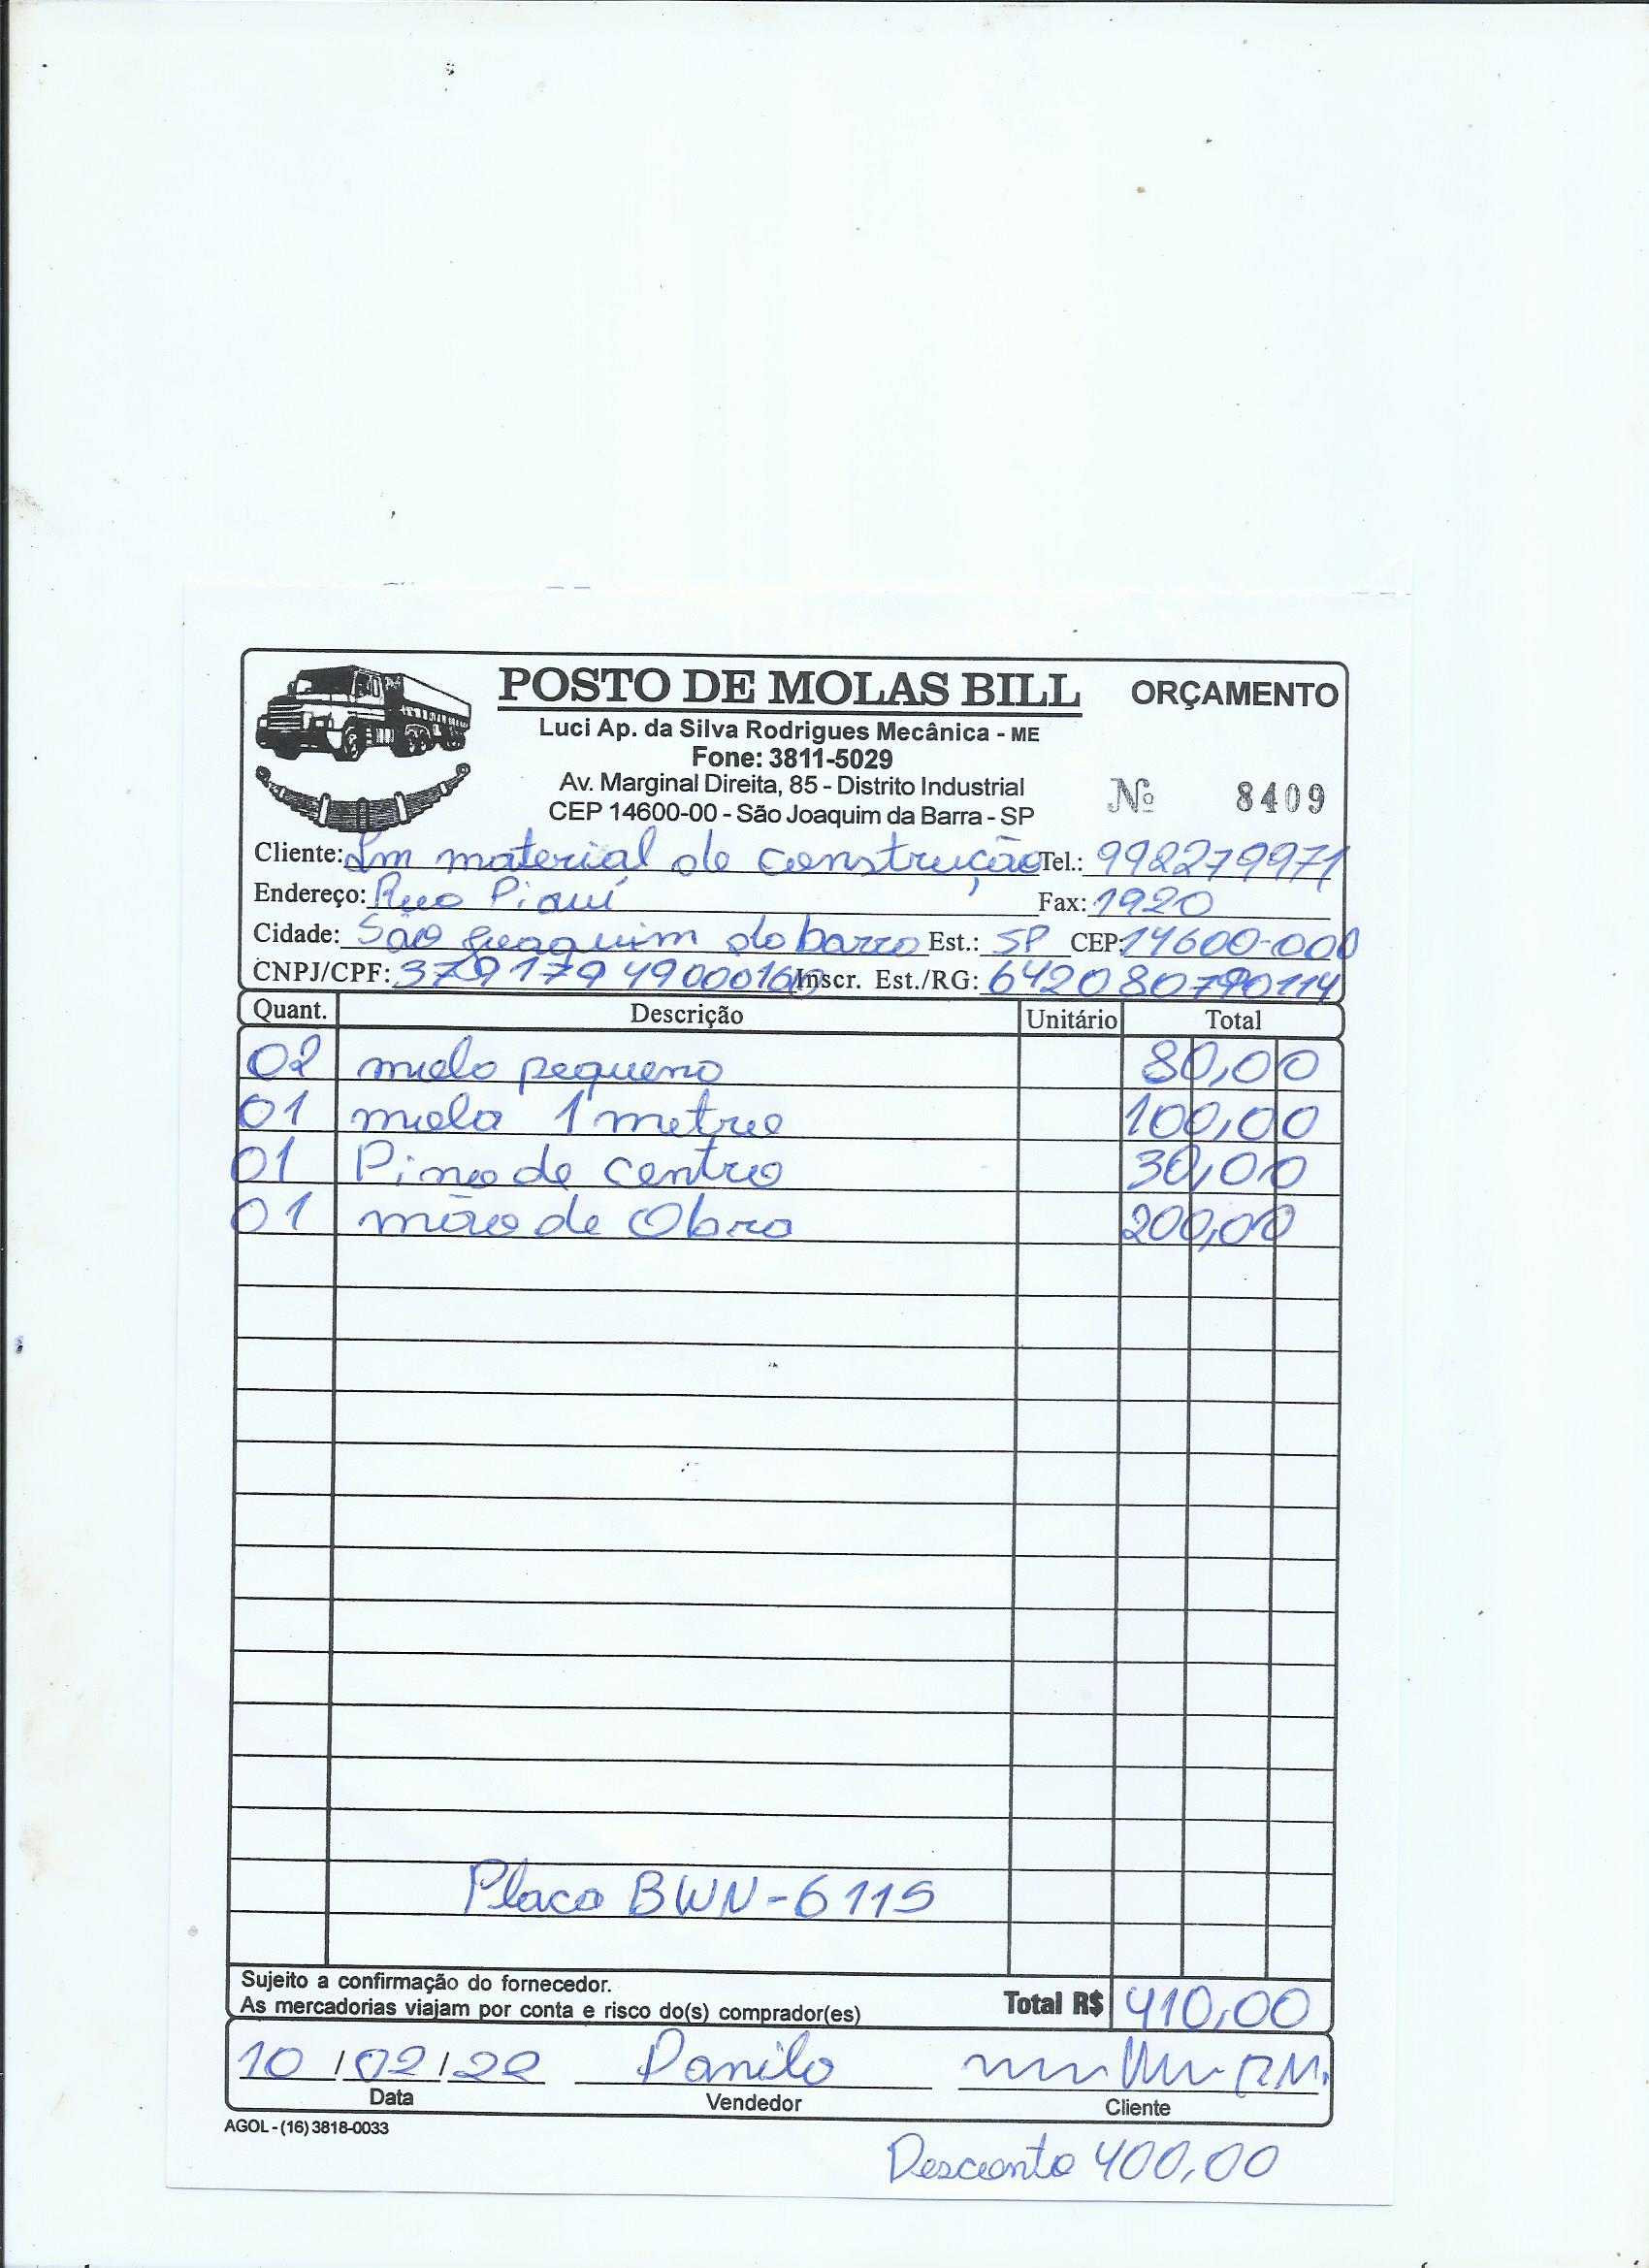 POSTO DE MOLAS BILL ORÇAMENTO
Luci Ap. da Silva Rodrigues Mecânica - ME
Fone: 3811-5029
Av. Marginal Direita, 85 - Distrito Industrial
CEP 14600-00 - São Joaquim da Barra - SP
Nº 8409
Cliente: Lm material de construção Tel.: 998279971
Endereço: Rua Piauí Fax: 1920
Cidade: São Joaquim da barra Est.: SP CEP: 14600-000
CNPJ/CPF: 37917949000160 Inscr. Est./RG: 642080790114
Quant. Descrição Unitário Total
02 mola pequeno 80,00
01 mola 1 metro 100,00
01 Pino de centro 30,00
01 mão de Obra 200,00
Placa BWN-6115
Sujeito a confirmação do fornecedor.
As mercadorias viajam por conta e risco do(s) comprador(es) Total R$ 410,00
10/02/22 Danilo
Data Vendedor Cliente
AGOL - (16) 3818-0033
Desconto 400,00